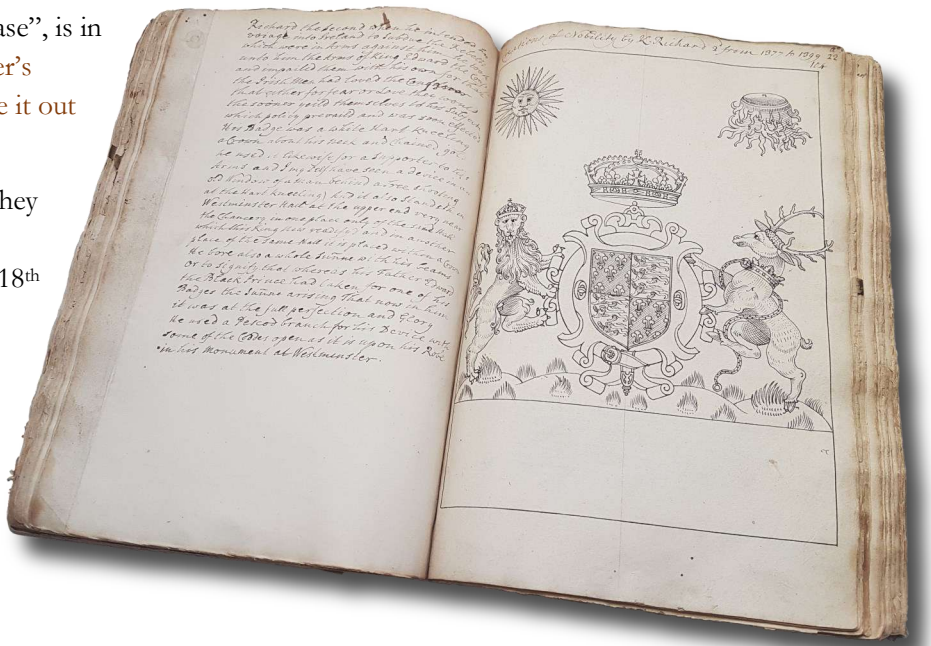 ase”, is in
er’s
e it out
hey
18th
Richard the Second when he intended a
voyage into Ireland to subdue the
which were in Arms against him
unto him the Arms of King Edward the Conf
and impaled them with his own for
the Irish Men had loved the Confessour
that either for fear or Love they would
the sooner yeild themselves to his
which policy prevailed and was some
His Badge was a white Hart kneeling
a Crown about his Neck and Chained, gold
he used it likewise for a Supporter to his
Arms and I my self have seen a device in an
old Window of a Man behind a tree shooting
at the Hart kneeling and it also stands in
Westminster Hall at the upper end very near
the Chancery in one place only of the said Hall
which this King new reedifyed and in another
place of the same Hall it is placed within a
He bore also a whole Sunne with his beams
Or to signify that whereas his Father Edward
the Black Prince had taken for one of his
Badges the Sunne arising That now in him
it was at the full perfection and Glory
he used a Pescod branch for his Device wt
some of the Codes open as it is upon his Robe
in his Monument at Westminster.
ations of Nobility by K. Richard 2d from 1377 to 1399 22